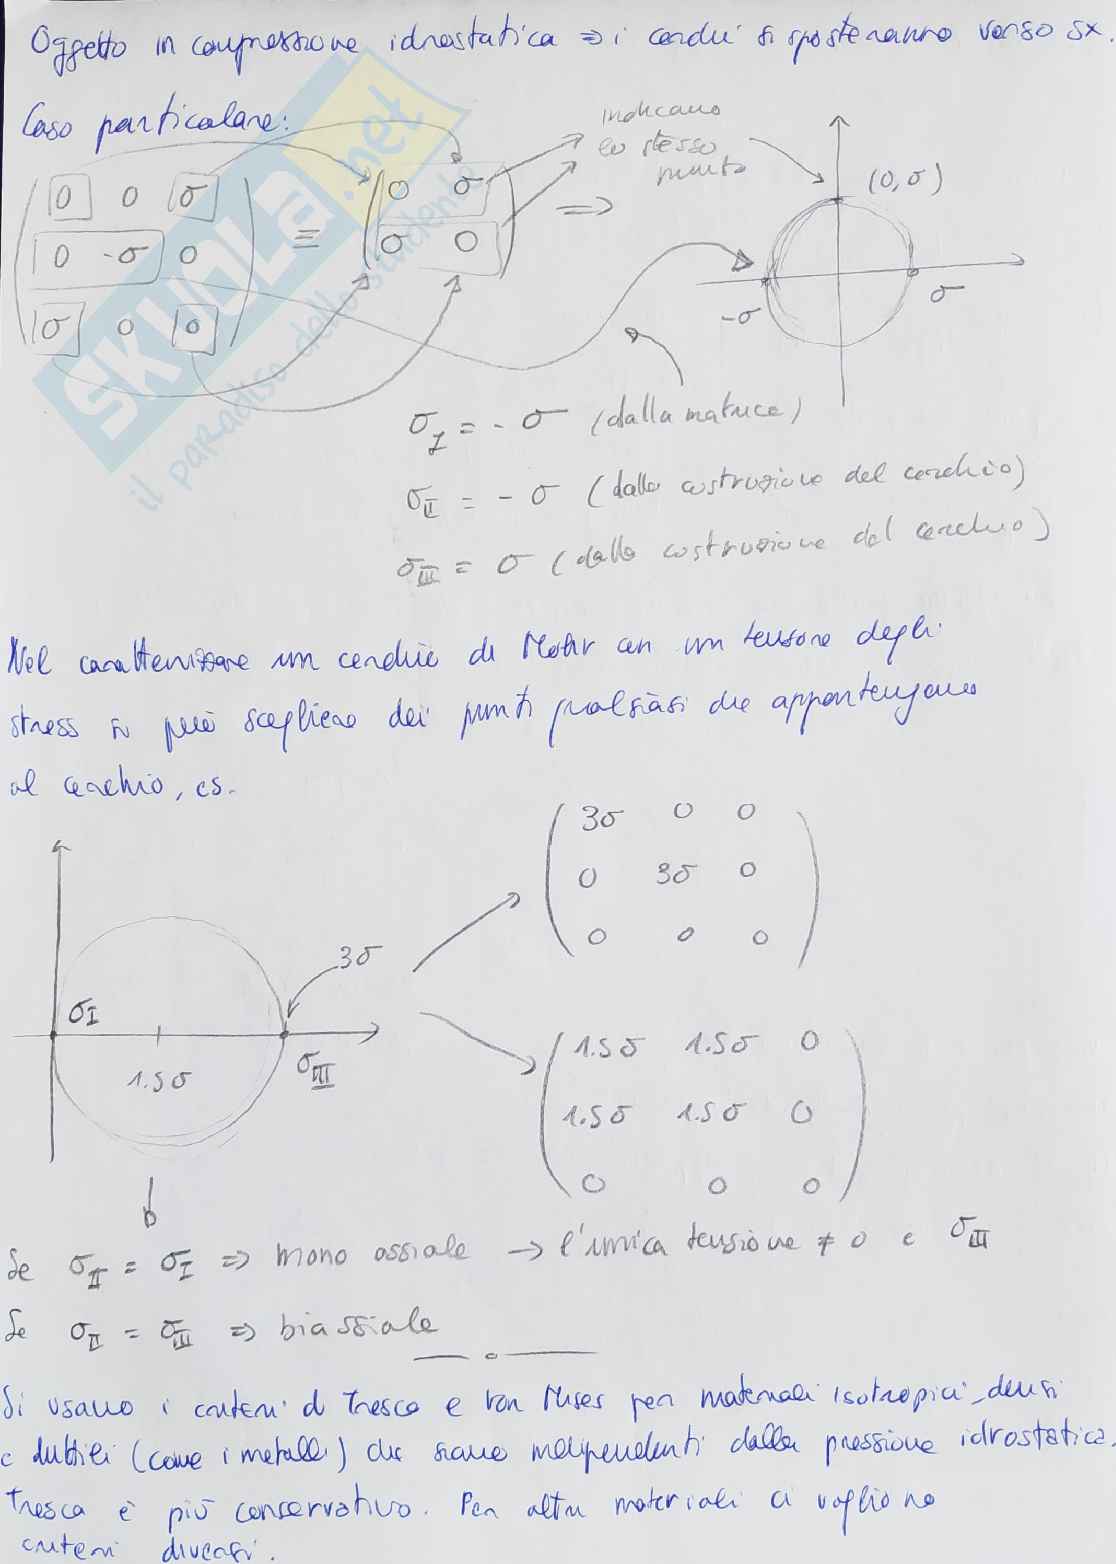 Oggetto in compressione idrostatica ⇒ i cerchi si sposteranno verso sx.
Caso particolare:
indicano
lo stesso
punto
0 0 σ
0 -σ 0
σ 0 0
≡
0 σ
σ 0
⇒
(0, σ)
-σ
σ
σI = - σ (dalla matrice)
σII = - σ (dalla costruzione del cerchio)
σIII = σ (dalla costruzione del cerchio)
Nel caratterizzare un cerchio di Mohr con un tensore degli
stress si può scegliere dei punti qualsiasi che appartengano
al cerchio, es.
3σ 0 0
0 3σ 0
0 0 0
3σ
σI
1.5σ
σIII
1.5σ 1.5σ 0
1.5σ 1.5σ 0
0 0 0
Se σII = σI ⇒ mono assiale → l'unica tensione ≠ 0 è σIII
Se σII = σIII ⇒ biassiale
Si usano i criteri di Tresca e Von Mises per materiali isotropici, densi
e duttili (come i metalli) che siano indipendenti dalla pressione idrostatica.
Tresca è più conservativo. Per altri materiali ci vogliono
criteri diversi.
SKUOLA.net
il paradiso dello studente